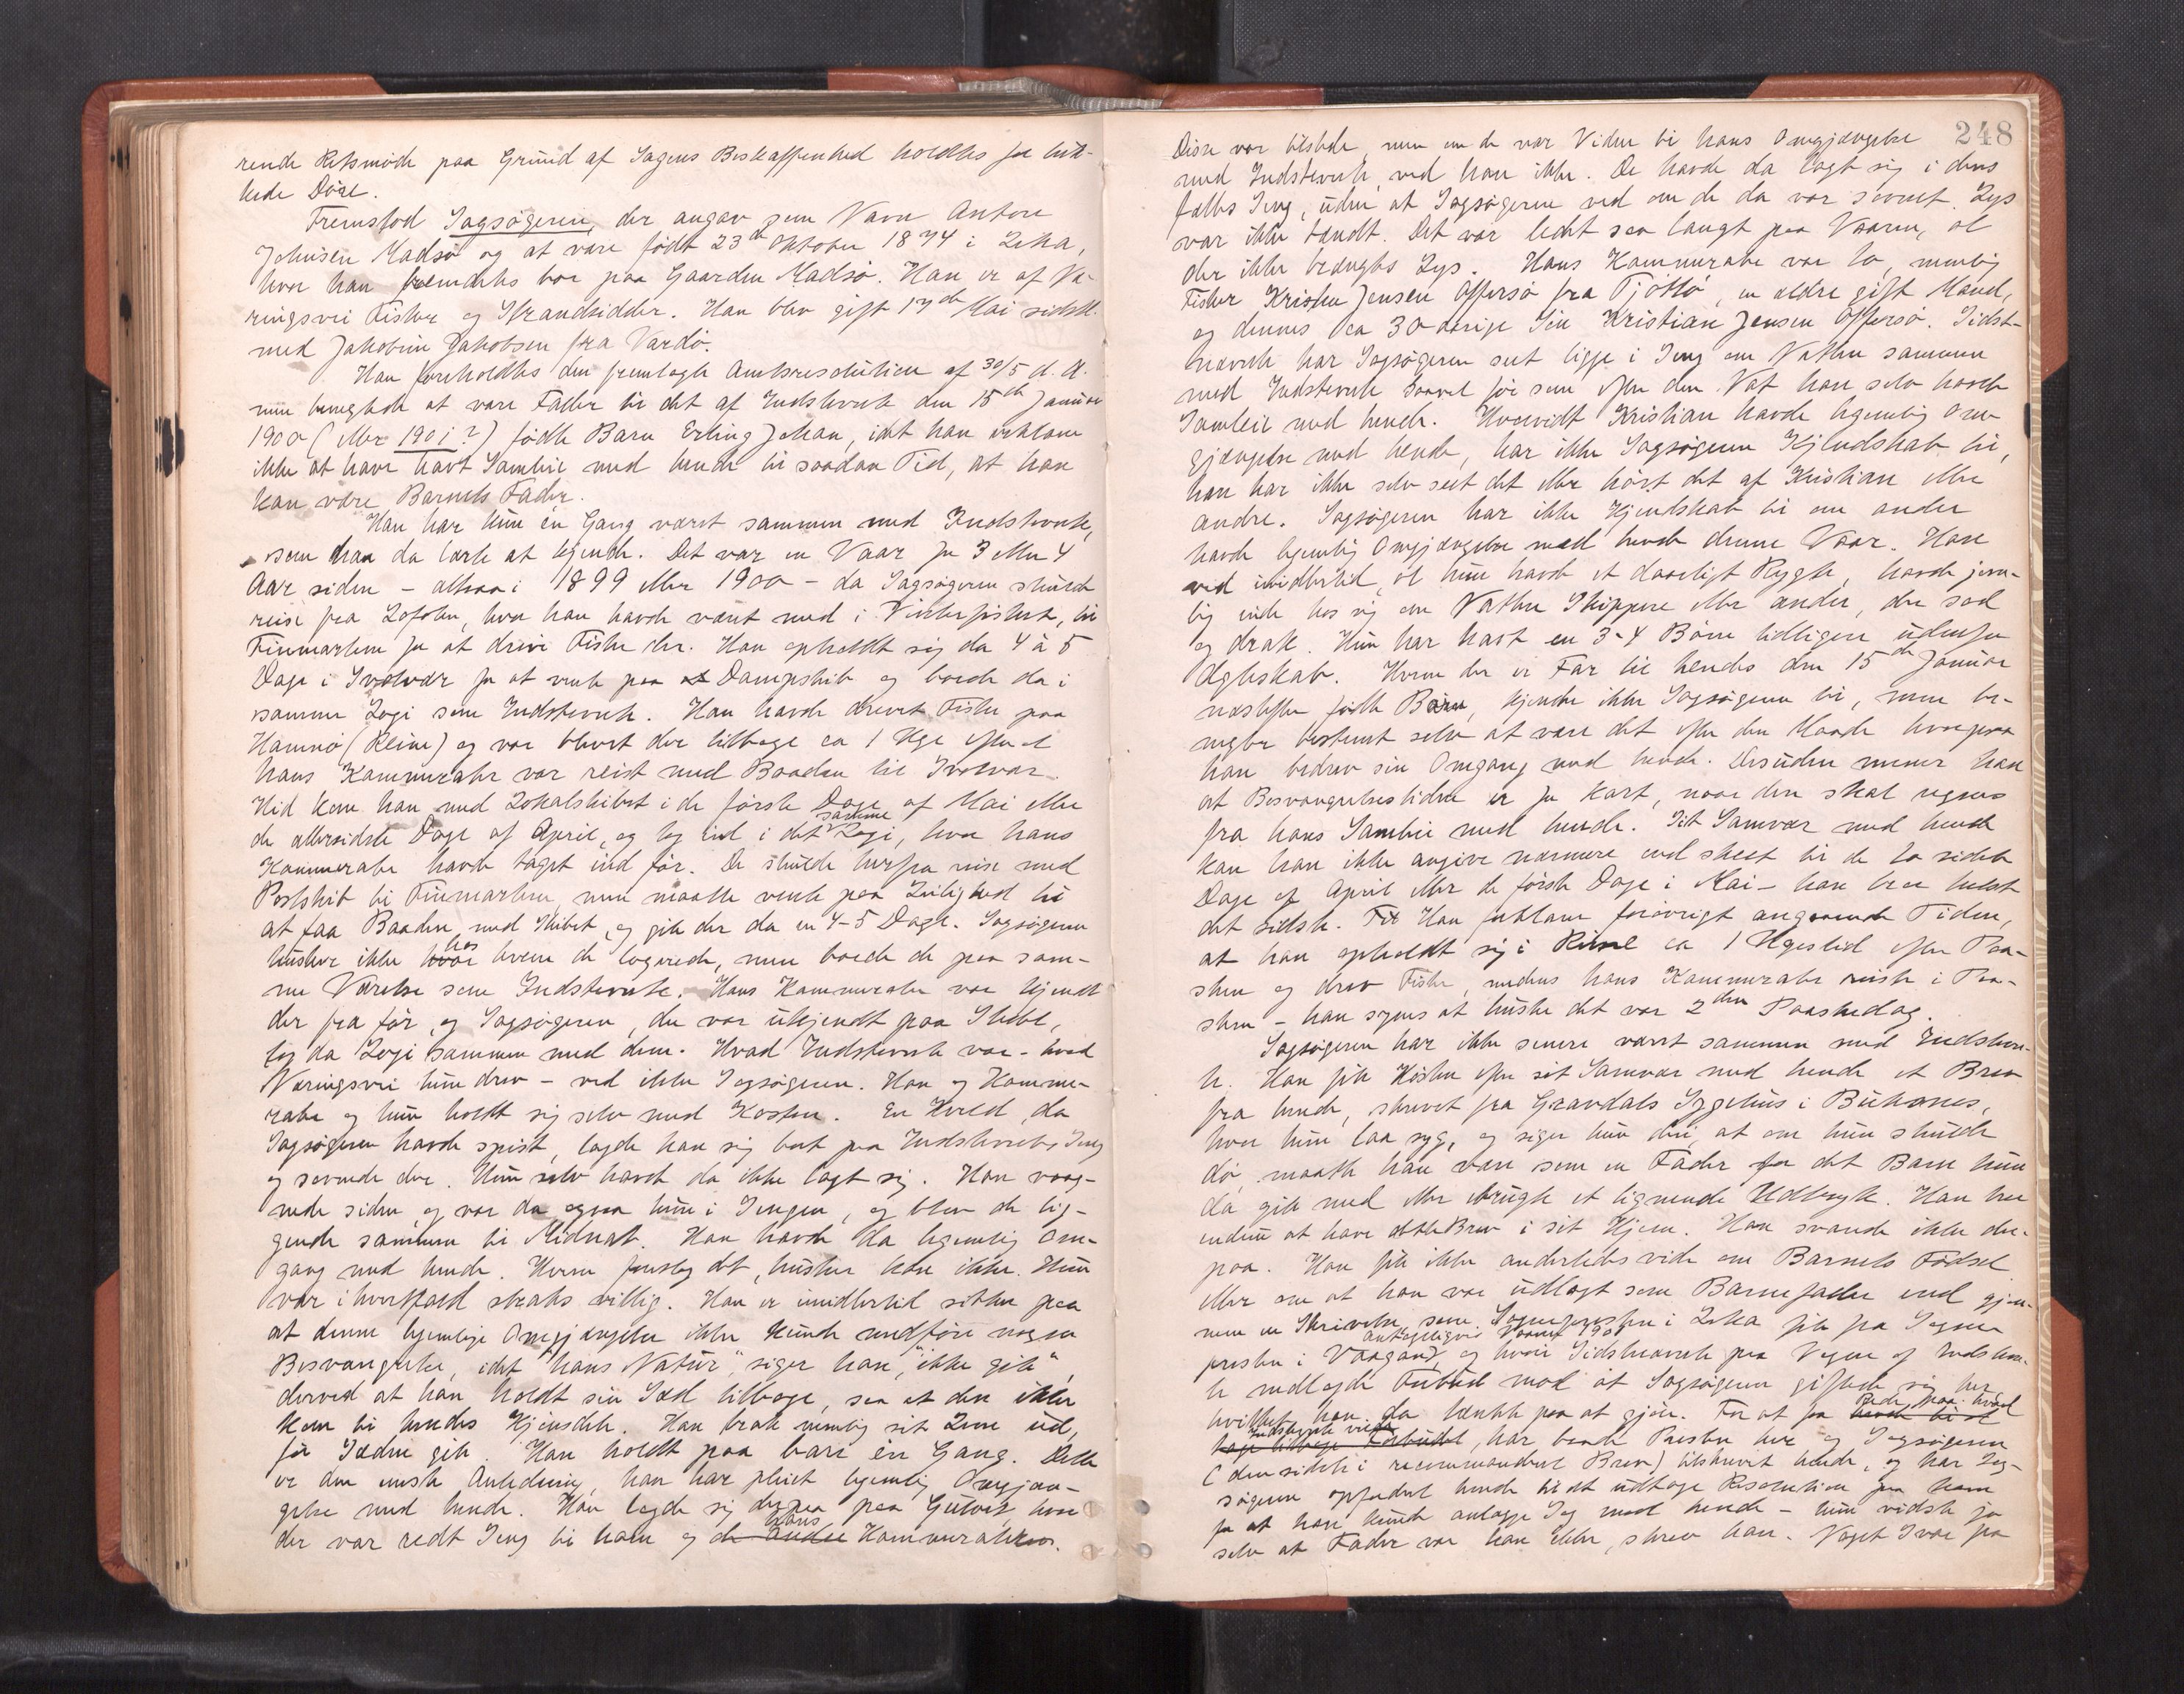 rende Retsmøde paa Grund af Sagens Beskaffenhed holdtes for luk-
kede Døre.
Fremstod Sagsøgeren, der angav som Navn Anton
Johnsen Madsø og at være født 23de Oktober 1874 i Leka,
hvor han fremdeles bor paa Gaarden Madsø. Han er af Næ-
ringsvei Fisker og Strandsidder. Han blev gift 17de Mai sidstl.
med Jakobine Jakobsen fra Vardø.
Han foreholdtes den fremlagte Amtsresolution af 30/5 d. A.
men benegtede at være Fader til det af Indstevnte den 15de Januar
1900 (eller 1901?) fødte Barn Erling Johan, idet han erklærer
ikke at have havt Samleie med hende til saadan Tid, at han
kan være Barnets Fader.
Han har kun én Gang været sammen med Indstevnte,
som han da lærte at kjende. Det var en Vaar for 3 eller 4
Aar siden – altsaa i 1899 eller 1900 – da Sagsøgeren skulde
reise fra Lofoten, hvor han havde været med i Vinterfisket, til
Finmarken for at drive Fiske der. Han opholdt sig da 4 à 5
Dage i Svolvær for at vente paa et Dampskib og boede da i
samme Logi som Indstevnte. Han havde drevet Fiske paa
Hamnø (Reine) og var blevet der tilbage ca 1 Uge efter at
hans Kammerater var reist med Baaden til Svolvær.
Hid kom han med Lokalskibet i de første Dage af Mai eller
de allersidste Dage af April, og tog ind i det samme Logi, hvor hans
Kammerater havde taget ind før. De skulde herfra reise med
Postskib til Finmarken, men maatte vente paa Leilighed til
at faa Baaden med Skibet, og gik der da en 4-5 Dage. Sagsøgeren
husker ikke hvor hos hvem de logerede, men boede de paa sam-
me Værelse som Indstevnte. Hans Kammerater var kjendt
der fra før, og Sagsøgeren, der var ukjendt paa Stedet,
tog da Logi sammen med dem. Hvad Indstevnte var – hvad
Næringsvei hun drev – ved ikke Sagsøgeren. Han og Kamme-
rater og hun holdt sig selv med Kosten. En Kveld, da
Sagsøgeren havde spist, lagde han sig bort paa Indstevntes Seng
og sovnede der. Hun selv havde da ikke lagt sig. Han vaag-
nede siden, og var da ogsaa hun i Sengen, og blev de lig-
gende sammen til Midnat. Han havde da legemlig Om-
gang med hende. Hvem foreslog det, husker han ikke. Hun
var ihvertfald straks villig. Han er imidlertid sikker paa
at denne legemlige Omgjængelse ikke kunde medføre nogen
Besvangrelse, idet "hans Natur", siger han, "ikke gik",
derved at han holdt sin Sæd tilbage, saa at den ikke
kom til hendes Kjønsdele. Han trak nemlig sit Lem ud,
før Sæden gik. Han holdt paa bare én Gang. Dette
er den eneste Anledning, han har pleiet legemlig Omgjæn-
gelse med hende. Han lagde sig derpaa paa Gulvet, hvor
der var redt Seng til ham og de andre hans Kammerater.
248
Disse var tilstede, men om de var Vidne til hans Omgjængelse
med Indstevnte, ved han ikke. De havde da lagt sig i deres
fælles Seng, uden at Sagsøgeren ved om de da var sovnet. Lys
var ikke tændt. Det var ledet saa langt paa Vaaren, at
der ikke brugtes Lys. Hans Kammerater var to, nemlig
Fisker Kristen Jensen Offersø fra Tjøttø, en ældre gift Mand,
og dennes ca 30-aarige Søn Kristian Jensen Offersø. Sidst-
nævnte har Sagsøgeren seet ligge i Seng om Natten sammen
med Indstevnte saavel før som efter den Nat han selv havde
Samleie med hende. Hvorvidt Kristian havde legemlig Om-
gjængelse med hende, har ikke Sagsøgeren Kjendskab til,
han har ikke selv seet det eller hørt det af Kristian eller
andre. Sagsøgeren har ikke Kjendskab til om andre
havde legemlig Omgjængelse med hende denne Vaar. Han
ved imidlertid, at hun havde et daarligt Rygte, havde jevn-
lig inde hos sig om Natten Skippere eller andre, der sad
og drak. Hun har havt en 3-4 Børn tidligere udenfor
Ægteskab. Hvem der er Far til hendes den 15de Januar
næstefter fødte Barn, kjender ikke Sagsøgeren til, men be-
negter bestemt selv at være det efter den Maade hvorpaa
han bedrev sin Omgang med hende. Desuden mener han
at Besvangrelsestiden er for kort, naar den skal regnes
fra hans Samleie med hende. Sit Samvær med hende
kan han ikke angive nærmere end skeet til de to sidste
Dage af April eller de første Dage i Mai – han tror helst
det sidste. Han forklarer forøvrigt angaaende Tiden,
at han opholdt sig i Reine ca 1 Ugestid efter Paa-
sken og drev Fiske, medens hans Kammerater reiste i Paa-
sken – han synes at huske det var 2den Paaskedag.
Sagsøgeren har ikke senere været sammen med Indstevn-
te. Han fik Høsten efter sit Samvær med hende et Brev
fra hende, skrevet fra Gravdals Sygehus i Buksnes,
hvor hun laa syg, og siger hun deri, at om hun skulde
dø, maatte han være som en Fader for det Barn hun
da gik med eller brugte et lignende Udtryk. Han tror
endnu at have dette Brev i sit Hjem. Han svarede ikke der-
paa. Han fik ikke anderledes vide om Barnets Fødsel
eller om at han var udlagt som Barnefader end gjen-
nem en Skrivelse, som Sognepresten i Leka fik fra Sogne-
presten i Vaagan, antageligvis Vaaren 1901 og hvori Sidstnævnte paa Vegne af Indstevn-
te nedlagde Forbud mod at Sagsøgeren giftede sig her,
hvilket han da tænkte paa at gjøre. For at faa Rede paa hvad
Indstevnte vilde, har baade Presten her og Sagsøgeren
(den sidste i recommanderet Brev) tilskrevet hende, og har Sag-
søgeren opfordret hende til at udtage Resolution paa ham
for at han kunde anlægge Sag mod hende – hun vidste jo
selv at Fader var han ikke, skrev han. Noget Svar fra